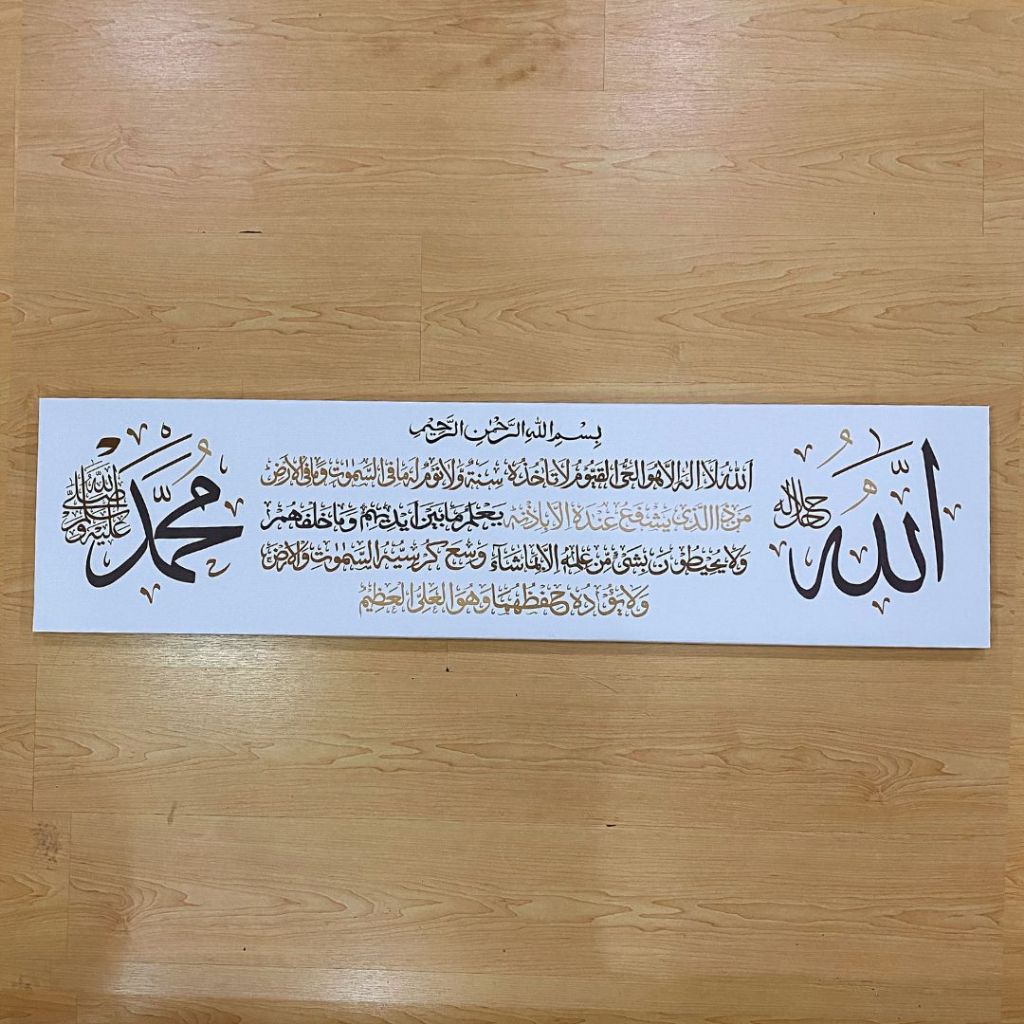 الله
جل جلاله
بِسْمِ اللهِ الرَّحْمٰنِ الرَّحِيْمِ
اَللهُ لَا اِلٰهَ اِلَّا هُوَ الْحَيُّ الْقَيُّوْمُ لَا تَأْخُذُهٗ سِنَةٌ وَّلَا نَوْمٌ لَهٗ مَا فِى السَّمٰوٰتِ وَمَا فِى الْاَرْضِ
مَنْ ذَا الَّذِىْ يَشْفَعُ عِنْدَهٗ اِلَّا بِاِذْنِهٖ يَعْلَمُ مَا بَيْنَ اَيْدِيْهِمْ وَمَا خَلْفَهُمْ
وَلَا يُحِيْطُوْنَ بِشَىْءٍ مِّنْ عِلْمِهٖ اِلَّا بِمَا شَآءَ وَسِعَ كُرْسِيُّهُ السَّمٰوٰتِ وَالْاَرْضَ
وَلَا يَؤُدُهٗ حِفْظُهُمَا وَهُوَ الْعَلِىُّ الْعَظِيْمُ
مُحَمَّد
صلى الله عليه وسلم